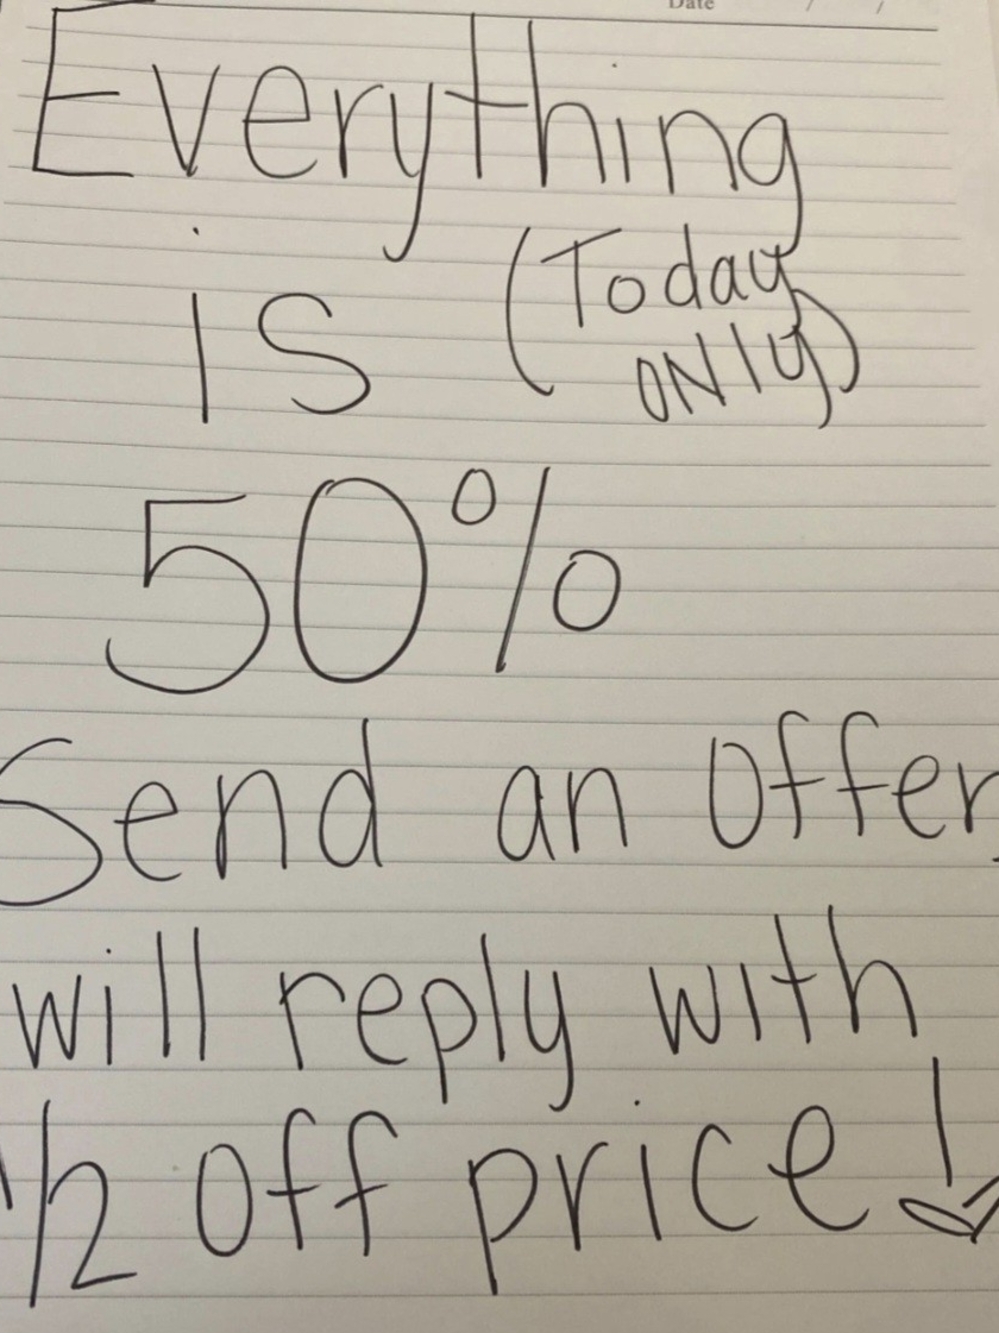 Date / /
Everything
is (Today
ONly)
50%
Send an Offer
will reply with
1/2 Off price!